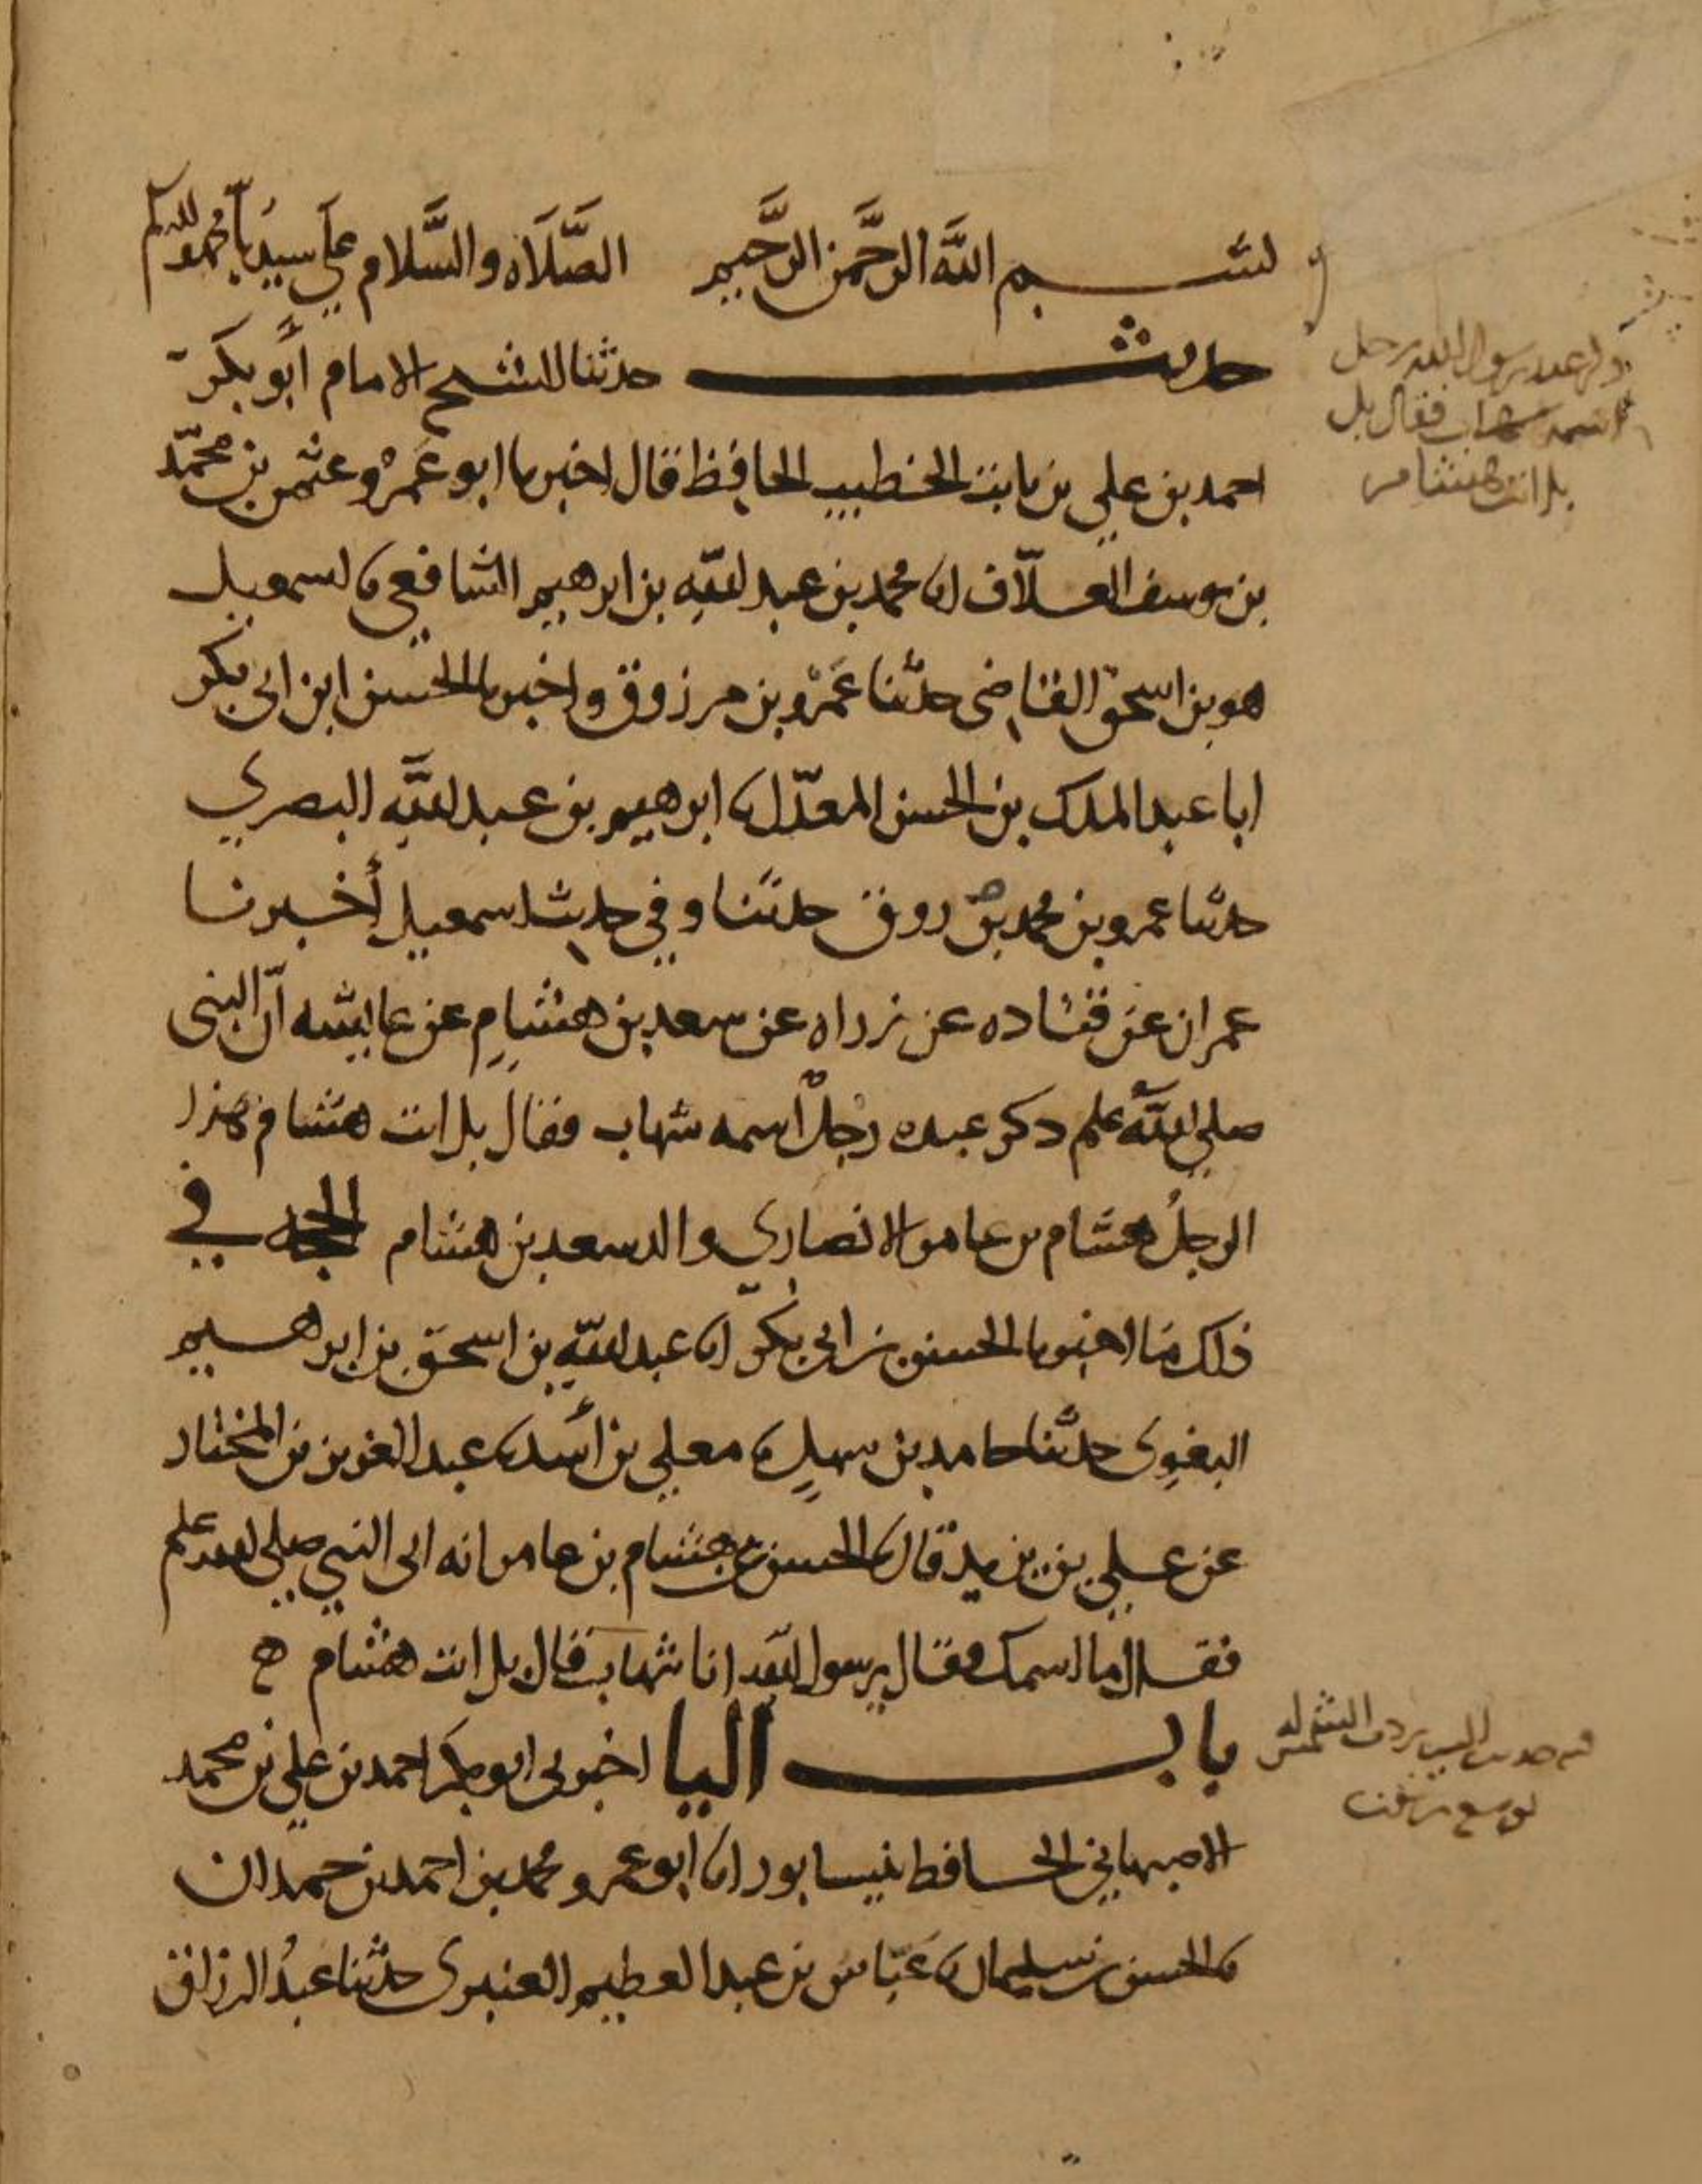 بسم الله الرحمن الرحيم الصلاه والسلام على سيدنا محمد واله
حديث حدثنا الشيخ الامام أبو بكر
احمد بن علي بن ثابت الخطيب الحافظ قال اخبرنا ابو عمرو عثمن بن محمد
بن يوسف العلاف انا محمد بن عبد الله بن ابرهيم الشافعي نا اسمعيل
هو بن اسحق القاضي حدثنا عمرو بن مرزوق واخبرنا الحسن ابن ابي بكر
ابا عبد الملك بن الحسن المعدل نا ابرهيم بن عبد الله البصري
حدثنا عمرو بن محمد بن روق حدثنا وفي حديث اسمعيل أخبرنا
عمران عن قتاده عن زراه عن سعد بن هشام عن عايشه أن النبي
صلى الله علم ذكر عنده رجل اسمه شهاب فقال بل انت هشام هذا
الرجل هشام بن عامر الانصاري والد سعد بن هشام الحجه في
ذلك ما اخبرنا الحسن بن ابي بكر انا عبد الله بن اسحق بن ابرهسيم
البغوي حدثنا حامد بن سهل نا معلي بن أسد نا عبد العزيز بن المختار
عن علي بن زيد قال نا الحسن عن هشام بن عامر انه اتى النبي صلى الله علم
فقال ما اسمك فقال يرسول الله انا شهاب قال بل انت هشام ه
باب اليا اخبرني ابو بكر احمد بن علي بن محمد
الاصبهاني الحافظ بنيسابور انا ابو عمرو محمد بن احمد بن حمدان
نا الحسن بن سليمان نا عباس بن عبد العظيم العنبري حدثنا عبد الرزاق
ذكر عند رسول الله رجل
اسمه شهاب فقال بل
بل انت هشام
حديث رد الشمس